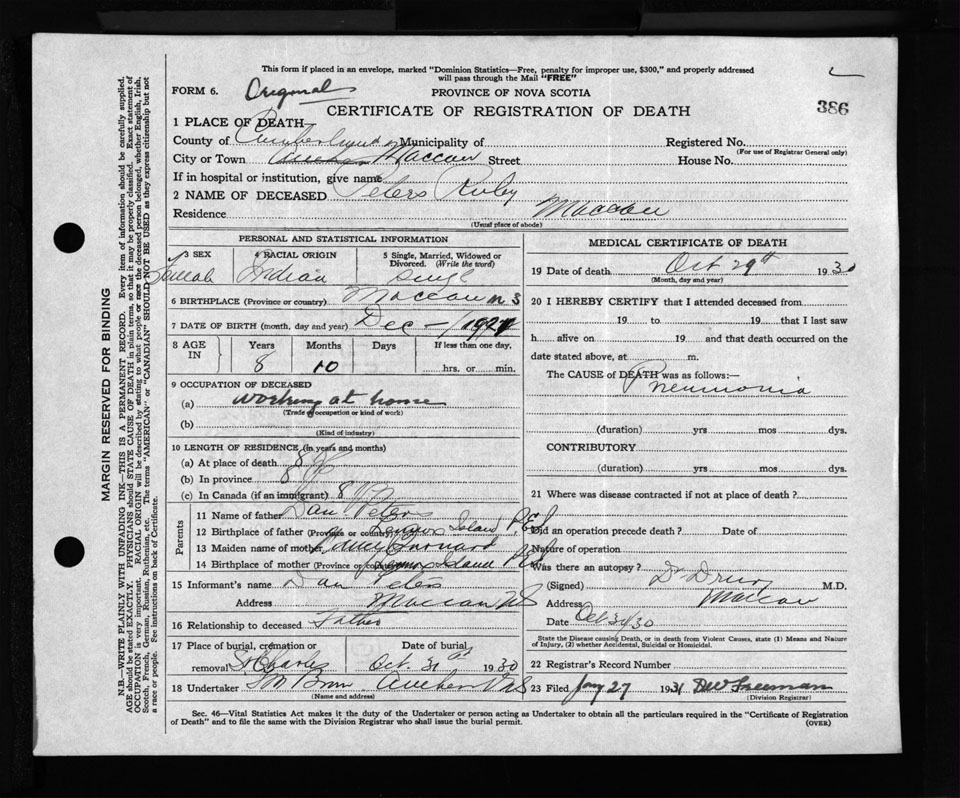 This form if placed in an envelope, marked "Dominion Statistics—Free, penalty for improper use, $300," and properly addressed
will pass through the Mail "FREE"
FORM 6. Original PROVINCE OF NOVA SCOTIA
CERTIFICATE OF REGISTRATION OF DEATH 386
1 PLACE OF DEATH
County of Cumberland Municipality of Registered No.
(For use of Registrar General only)
City or Town Maccan Street House No.
If in hospital or institution, give name
2 NAME OF DECEASED Peters Ruby
Residence Maccan
(Usual place of abode)
PERSONAL AND STATISTICAL INFORMATION
3 SEX 4 RACIAL ORIGIN 5 Single, Married, Widowed or
Divorced. (Write the word)
Female Indian Single
6 BIRTHPLACE (Province or country) Maccan N S
7 DATE OF BIRTH (month, day and year) Dec — 1921
8 AGE IN Years Months Days If less than one day,
8 10 hrs. or min.
9 OCCUPATION OF DECEASED
(a) Working at home
(Trade occupation or kind of work)
(b)
(Kind of industry)
10 LENGTH OF RESIDENCE (in years and months)
(a) At place of death 8
(b) In province 8
(c) In Canada (if an immigrant) 8
Parents
11 Name of father Dan Peters
12 Birthplace of father (Province or country) Lennox Island P.E.I
13 Maiden name of mother
14 Birthplace of mother (Province or country) Lennox Island P.E.I
15 Informant's name Dan Peters
Address Maccan NS
16 Relationship to deceased Father
17 Place of burial, cremation or Date of burial
removal St Charles Oct. 31st 1930
18 Undertaker NS
(Name and address)
MEDICAL CERTIFICATE OF DEATH
19 Date of death Oct 29th 1930
(Month, day and year)
20 I HEREBY CERTIFY that I attended deceased from
19 to 19 that I last saw
h alive on 19 and that death occurred on the
date stated above, at m.
The CAUSE of DEATH was as follows:—
Pneumonia
(duration) yrs mos dys.
CONTRIBUTORY
(duration) yrs mos dys.
21 Where was disease contracted if not at place of death?
Did an operation precede death? Date of
Nature of operation
Was there an autopsy?
(Signed) Dr Drury M.D.
Address Maccan
Date Oct 31/30
State the Disease causing Death, or in death from Violent Causes, state (1) Means and Nature
of Injury, (2) whether Accidental, Suicidal or Homicidal.
22 Registrar's Record Number
23 Filed Jany 27 1931 Freeman
(Division Registrar)
Sec. 46—Vital Statistics Act makes it the duty of the Undertaker or person acting as Undertaker to obtain all the particulars required in the "Certificate of Registration
of Death" and to file the same with the Division Registrar who shall issue the burial permit. (OVER)
MARGIN RESERVED FOR BINDING
N.B.—WRITE PLAINLY WITH UNFADING INK—THIS IS A PERMANENT RECORD. Every item of information should be carefully supplied.
AGE should be stated EXACTLY. PHYSICIANS should STATE CAUSE OF DEATH in plain terms, so that it may be properly classified. Exact statement of
OCCUPATION is very important. RACIAL ORIGIN will be described by stating to what people or race the deceased person belonged, whether English, Irish,
Scotch, French, German, Russian, Ruthenian, etc. The terms "AMERICAN" or "CANADIAN" SHOULD NOT BE USED as they express citizenship but not
a race or people. See instructions on back of Certificate.